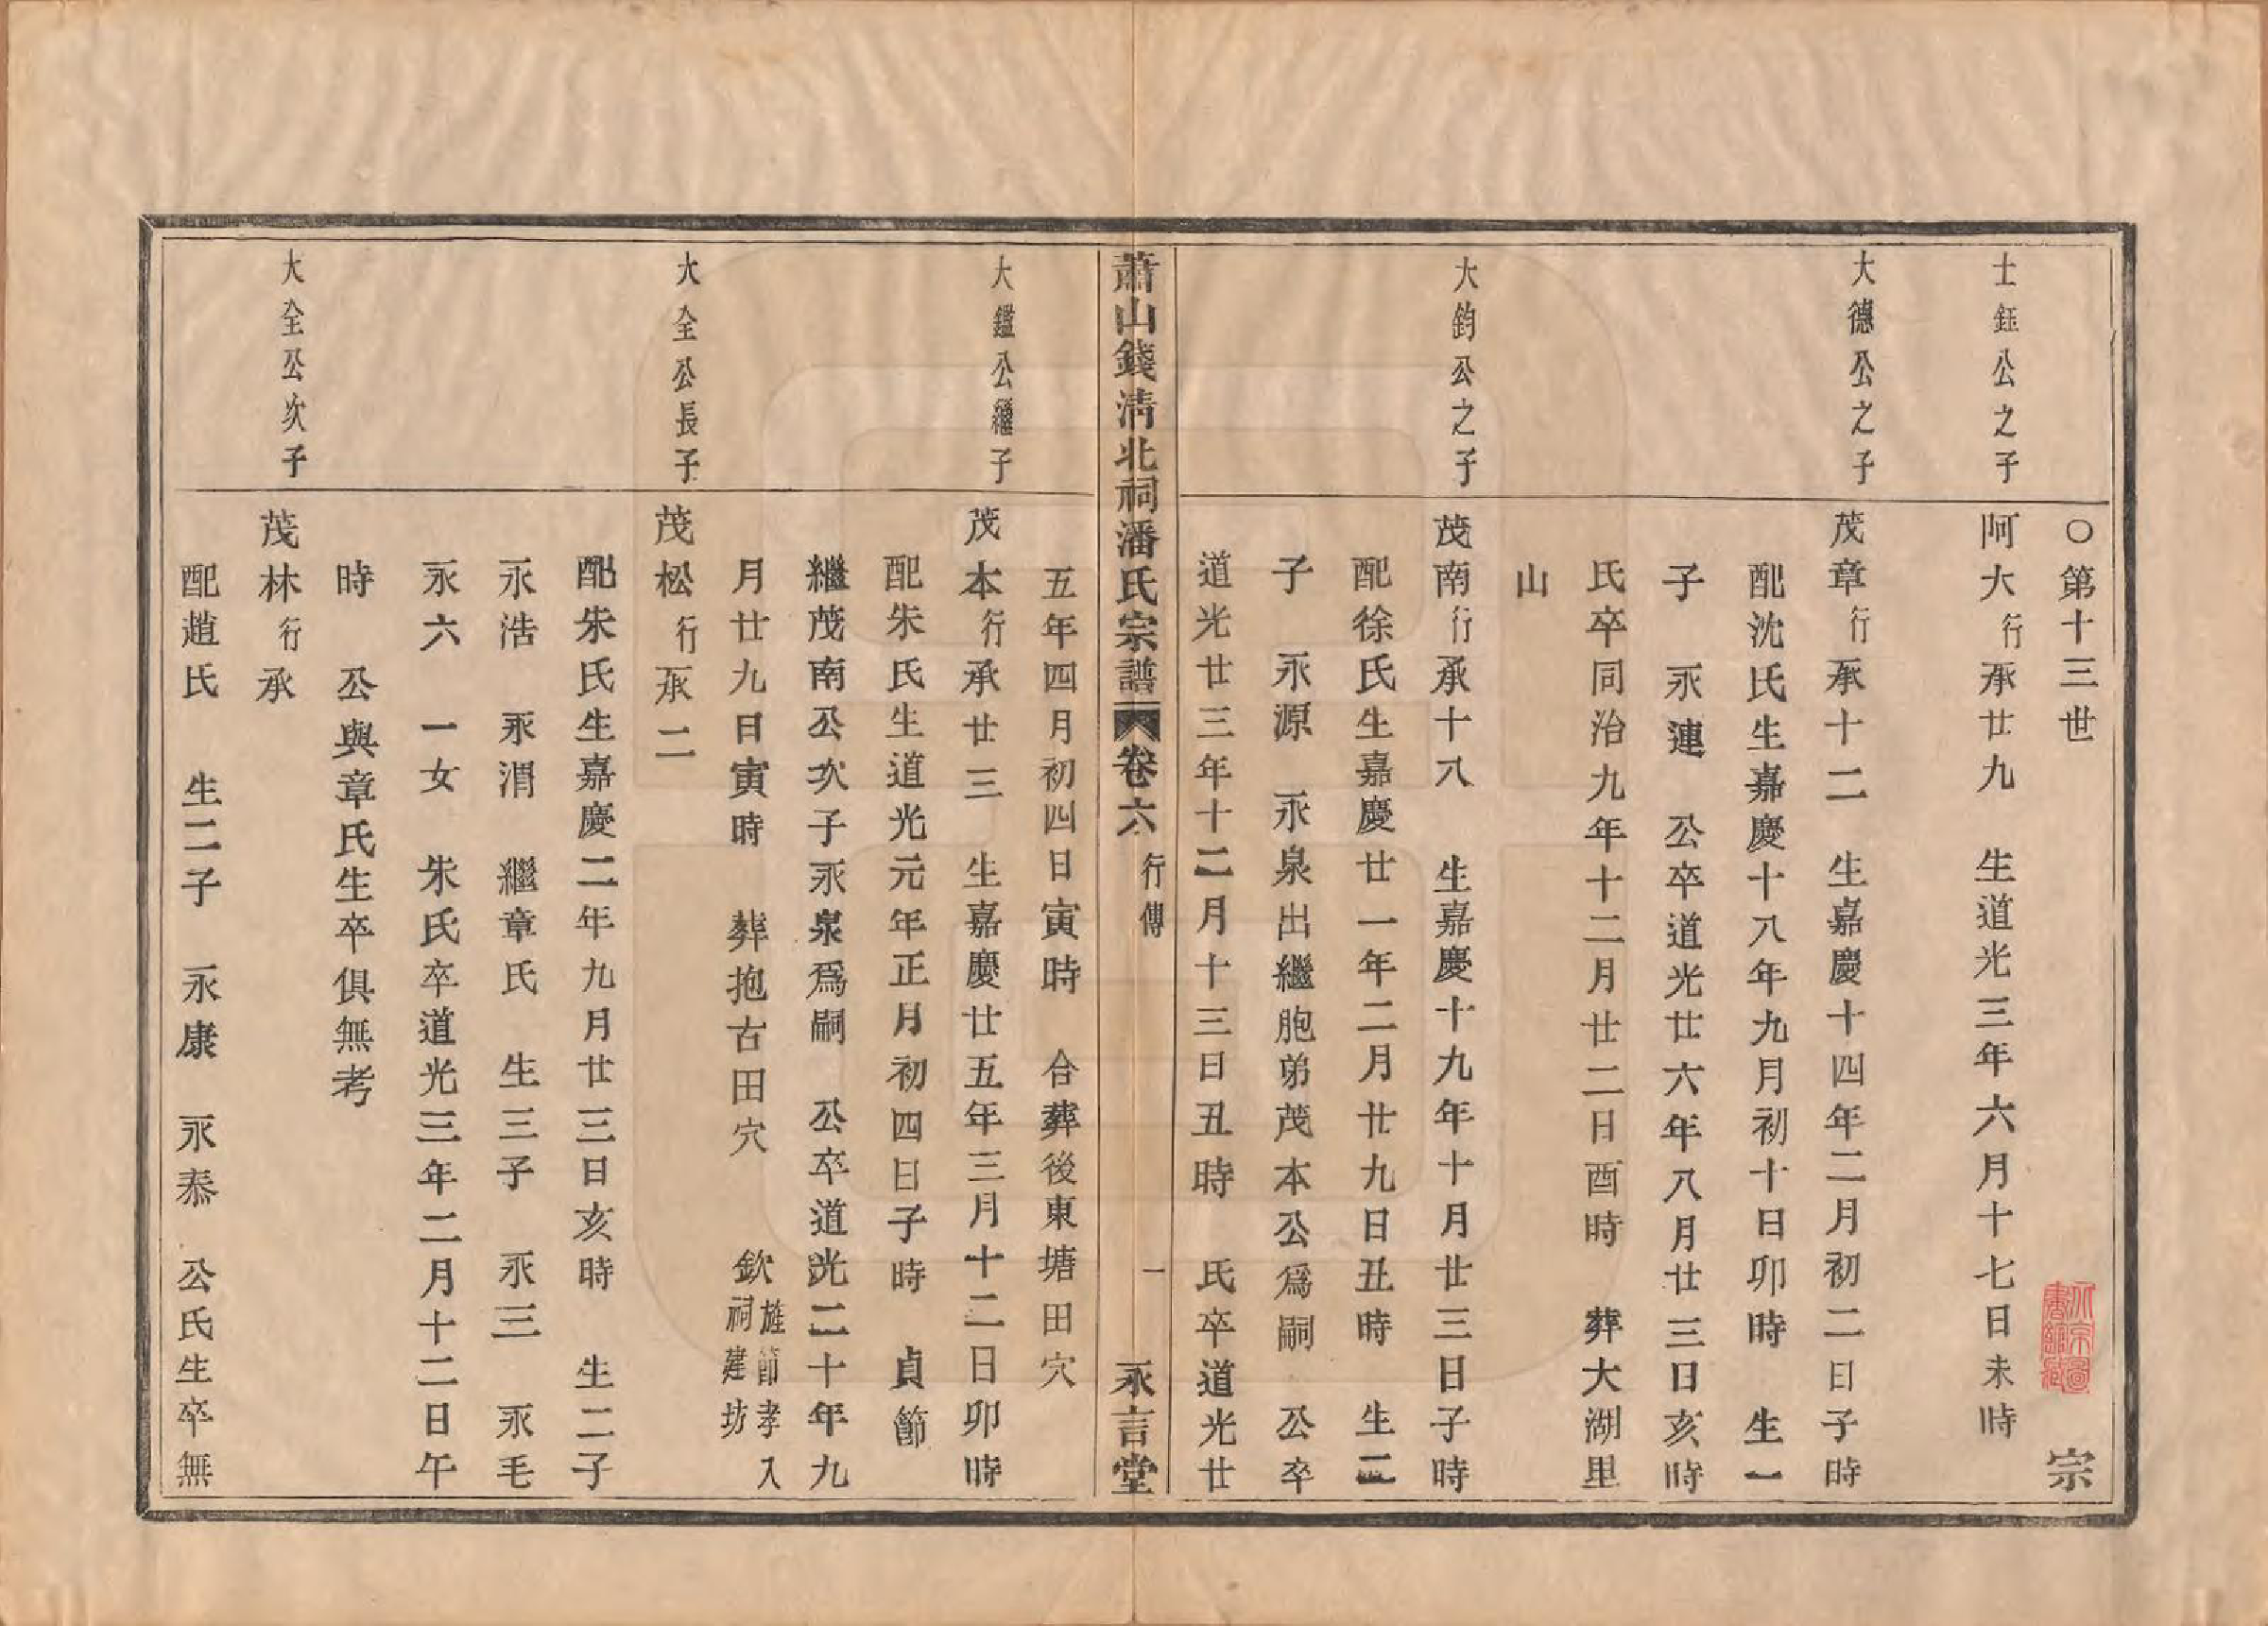 ○第十三世　宗
士鈺公之子
阿大行承廿九　生道光三年六月十七日未時
大德公之子
茂章行承十二　生嘉慶十四年二月初二日子時
配沈氏生嘉慶十八年九月初十日卯時　生一
子　永連　公卒道光廿六年八月廿三日亥時
氏卒同治九年十二月廿二日酉時　葬大湖里
山
大鈞公之子
茂南行承十八　生嘉慶十九年十月廿三日子時
配徐氏生嘉慶廿一年二月廿九日丑時　生二
子　永源　永泉出繼胞弟茂本公爲嗣　公卒
道光廿三年十二月十三日丑時　氏卒道光廿
蕭山錢清北祠潘氏宗譜　卷六　行傳　一　永言堂
五年四月初四日寅時　合葬後東塘田穴
大鑑公繼子
茂本行承廿三　生嘉慶廿五年三月十二日卯時
配朱氏生道光元年正月初四日子時　貞節
繼茂南公次子永泉爲嗣　公卒道光二十年九
月廿九日寅時　葬抱古田穴　欽旌節孝入祠建坊
大全公長子
茂松行承二
配朱氏生嘉慶二年九月廿三日亥時　生二子
永浩　永渭　繼章氏　生三子　永三　永毛
永六　一女　朱氏卒道光三年二月十二日午
時　公與章氏生卒俱無考
大全公次子
茂林行承
配趙氏　生二子　永康　永泰　公氏生卒無